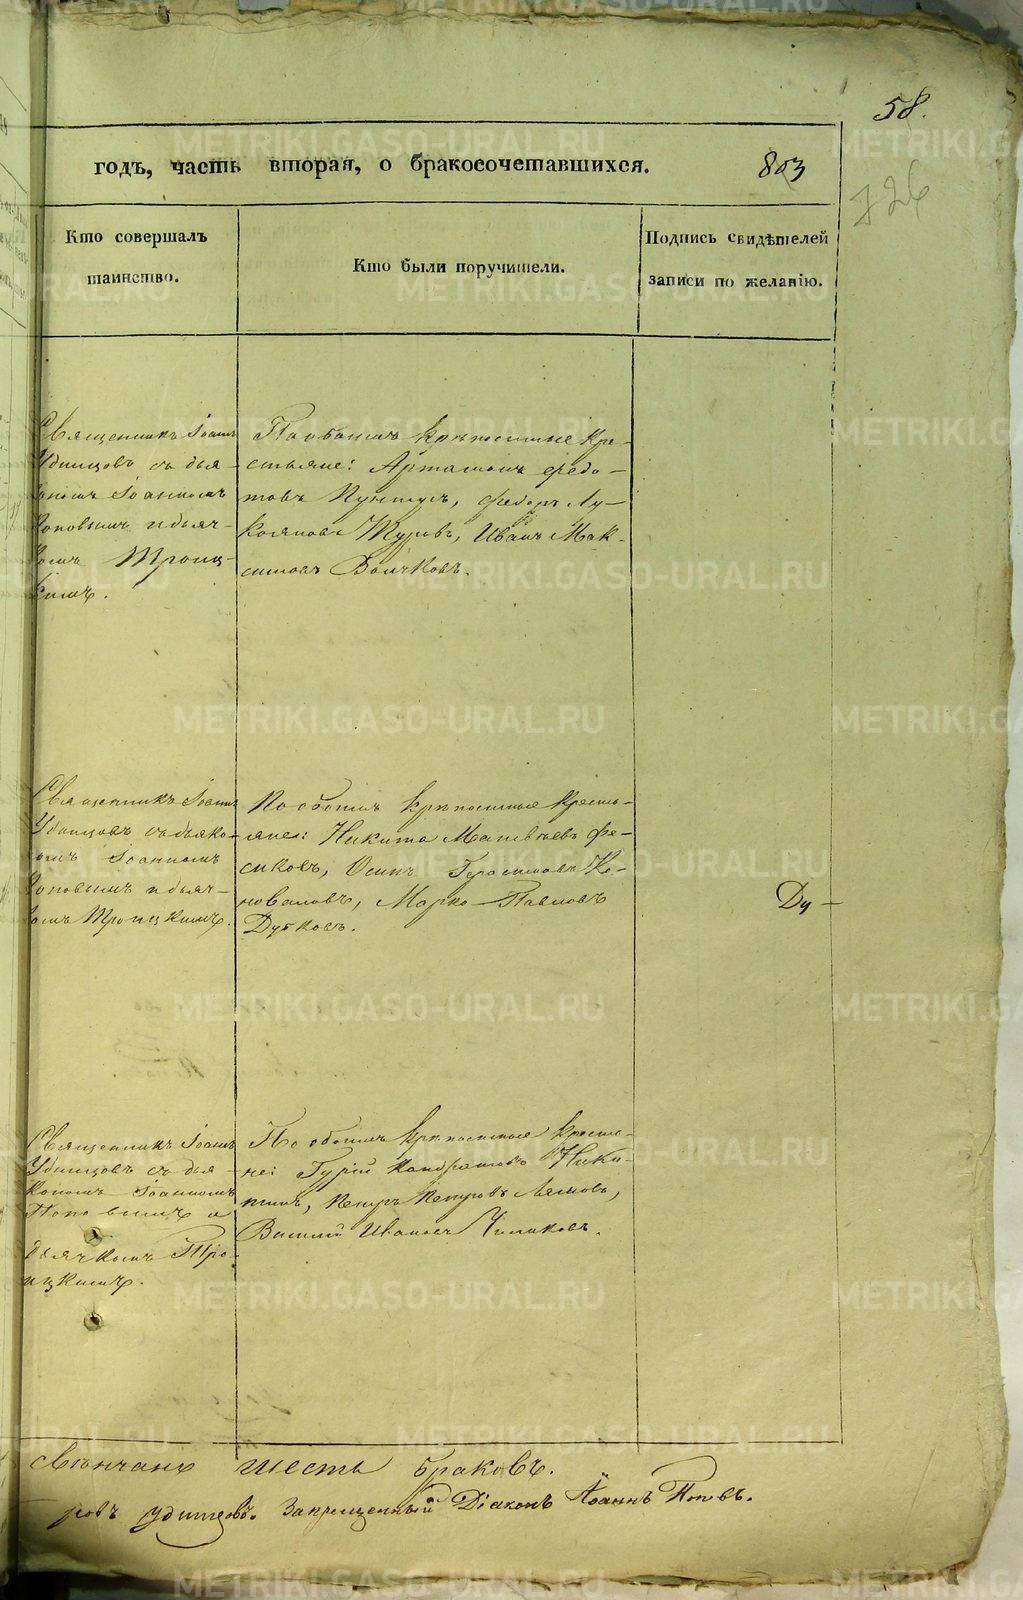 58.
годъ, часть вторая, о бракосочетавшихся. 803
726
Кто совершалъ
таинство.
Кто были поручители.
Подпись свидѣтелей
записи по желанію.
Священникъ Іоаннъ
Удинцовъ съ дья-
кономъ Іоанномъ
Поповымъ и дьяч-
комъ Троиц-
кимъ.
По обоимъ крѣпостные кре-
стьяне: Артамонъ Федо-
товъ, Федоръ Лу-
Журовъ, Иванъ Мак-
симовъ Волчковъ.
Священникъ Іоаннъ
Удинцовъ съ дьяко-
номъ Іоанномъ
Поповымъ и дьяч-
комъ Троицкимъ.
По обоимъ крѣпостные кресть-
яне: Никита Матвѣевъ Фе-
сиковъ, Осипъ Герасимовъ Ко-
новаловъ, Марко Павловъ
Дутковъ.
Ду-
Священникъ Іоаннъ
Удинцовъ съ дья-
кономъ Іоанномъ
Поповымъ и
дьячкомъ Тро-
ицкимъ.
По обоимъ крѣпостные кресть-
не: Гурій Кондратовъ Ники-
тинъ, Петръ Петровъ
Василій Ивановъ Чиликовъ.
свѣнчано шесть браковъ.
ровъ Удинцовъ. Запрещенный Діаконъ Іоаннъ Поповъ.
METRIKI.GASO-URAL.RU